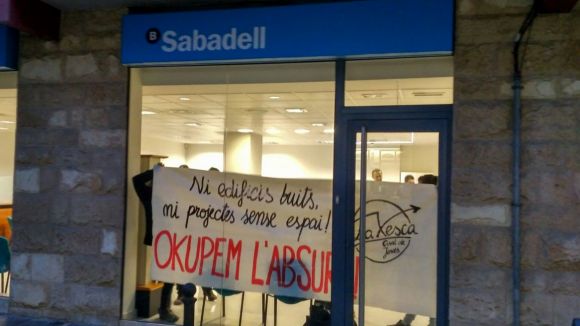 B Sabadell
Ni edificis buits,
ni projectes sense espai!
OKUPEM L'ABSUR !
La Xesca
Casal de
Joves